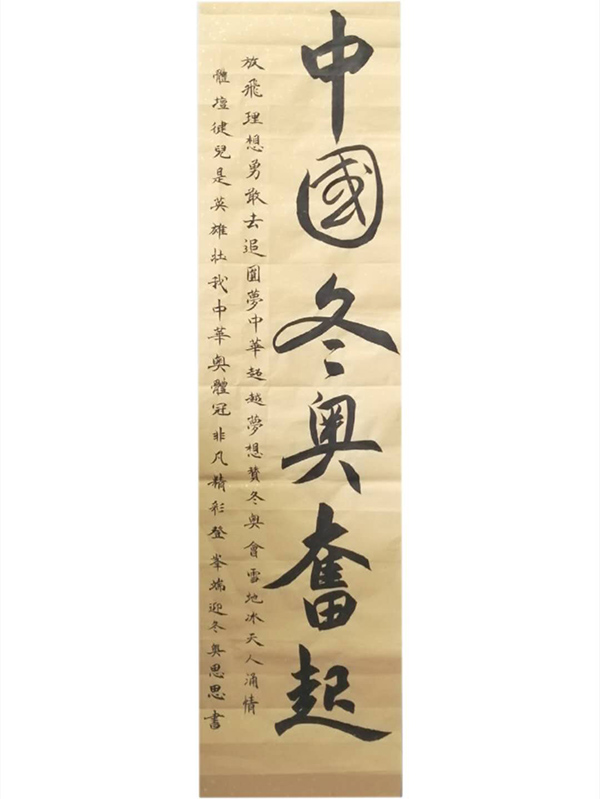 中國冬奥奮起
放飛理想勇敢去追圓夢中華起越夢想贊冬奥會雪地冰天人涌情
體壇健兒是英雄壯我中華奥體冠非凡精彩登峯端迎冬奥思思書